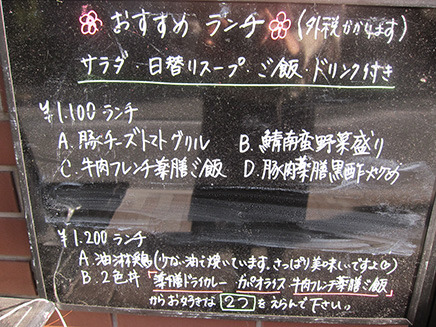 おすすめ ランチ (外税かかります)
サラダ・日替りスープ・ご飯・ドリンク付き
¥1.100 ランチ
A. 豚チーズトマトグリル B. 鯖南蛮野菜盛り
C. 牛肉フレンチ薬膳ご飯 D. 豚肉薬膳黒酢炒め
¥1.200 ランチ
A. 油淋鶏(少な油で焼いています。さっぱり美味しいですよ)
B. 2色丼 「薬膳ドライカレー ガパオライス 牛肉フレンチ薬膳ご飯」
からお好きな 2つ をえらんで下さい。